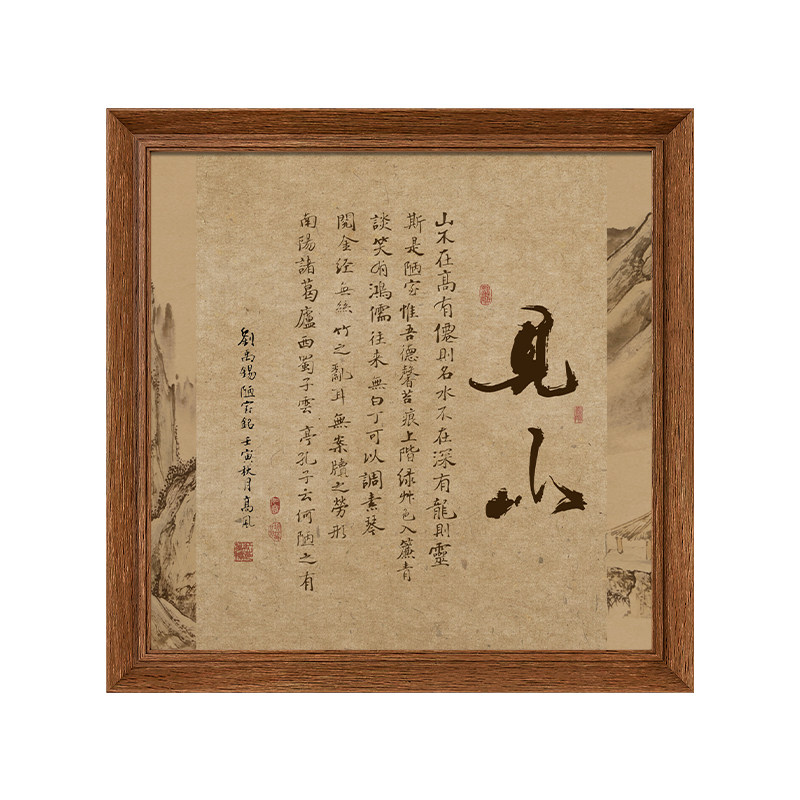 見山
山不在高有僊則名水不在深有龍則靈
斯是陋室惟吾德馨苔痕上階緑艸色入簾青
談笑有鴻儒往来無白丁可以調素琴
閱金経無絲竹之亂耳無案牘之勞形
南陽諸葛廬西蜀子雲亭孔子云何陋之有
劉禹錫陋室銘壬寅秋月高风